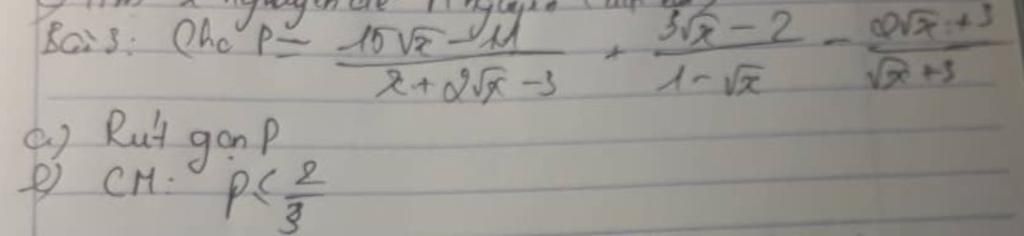 Bài 3: Cho P = \frac{15\sqrt{x} - 11}{x + 2\sqrt{x} - 3} + \frac{3\sqrt{x} - 2}{1 - \sqrt{x}} - \frac{2\sqrt{x} + 3}{\sqrt{x} + 3}
a) Rút gọn P
b) CM: P < \frac{2}{3}